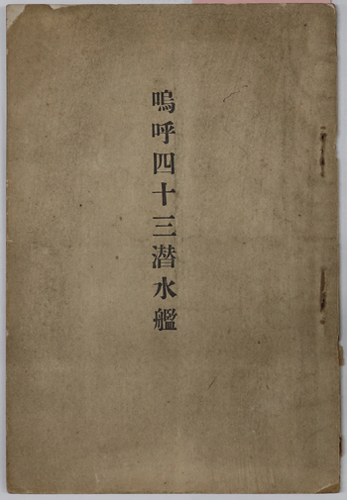 嗚呼四十三潜水艦